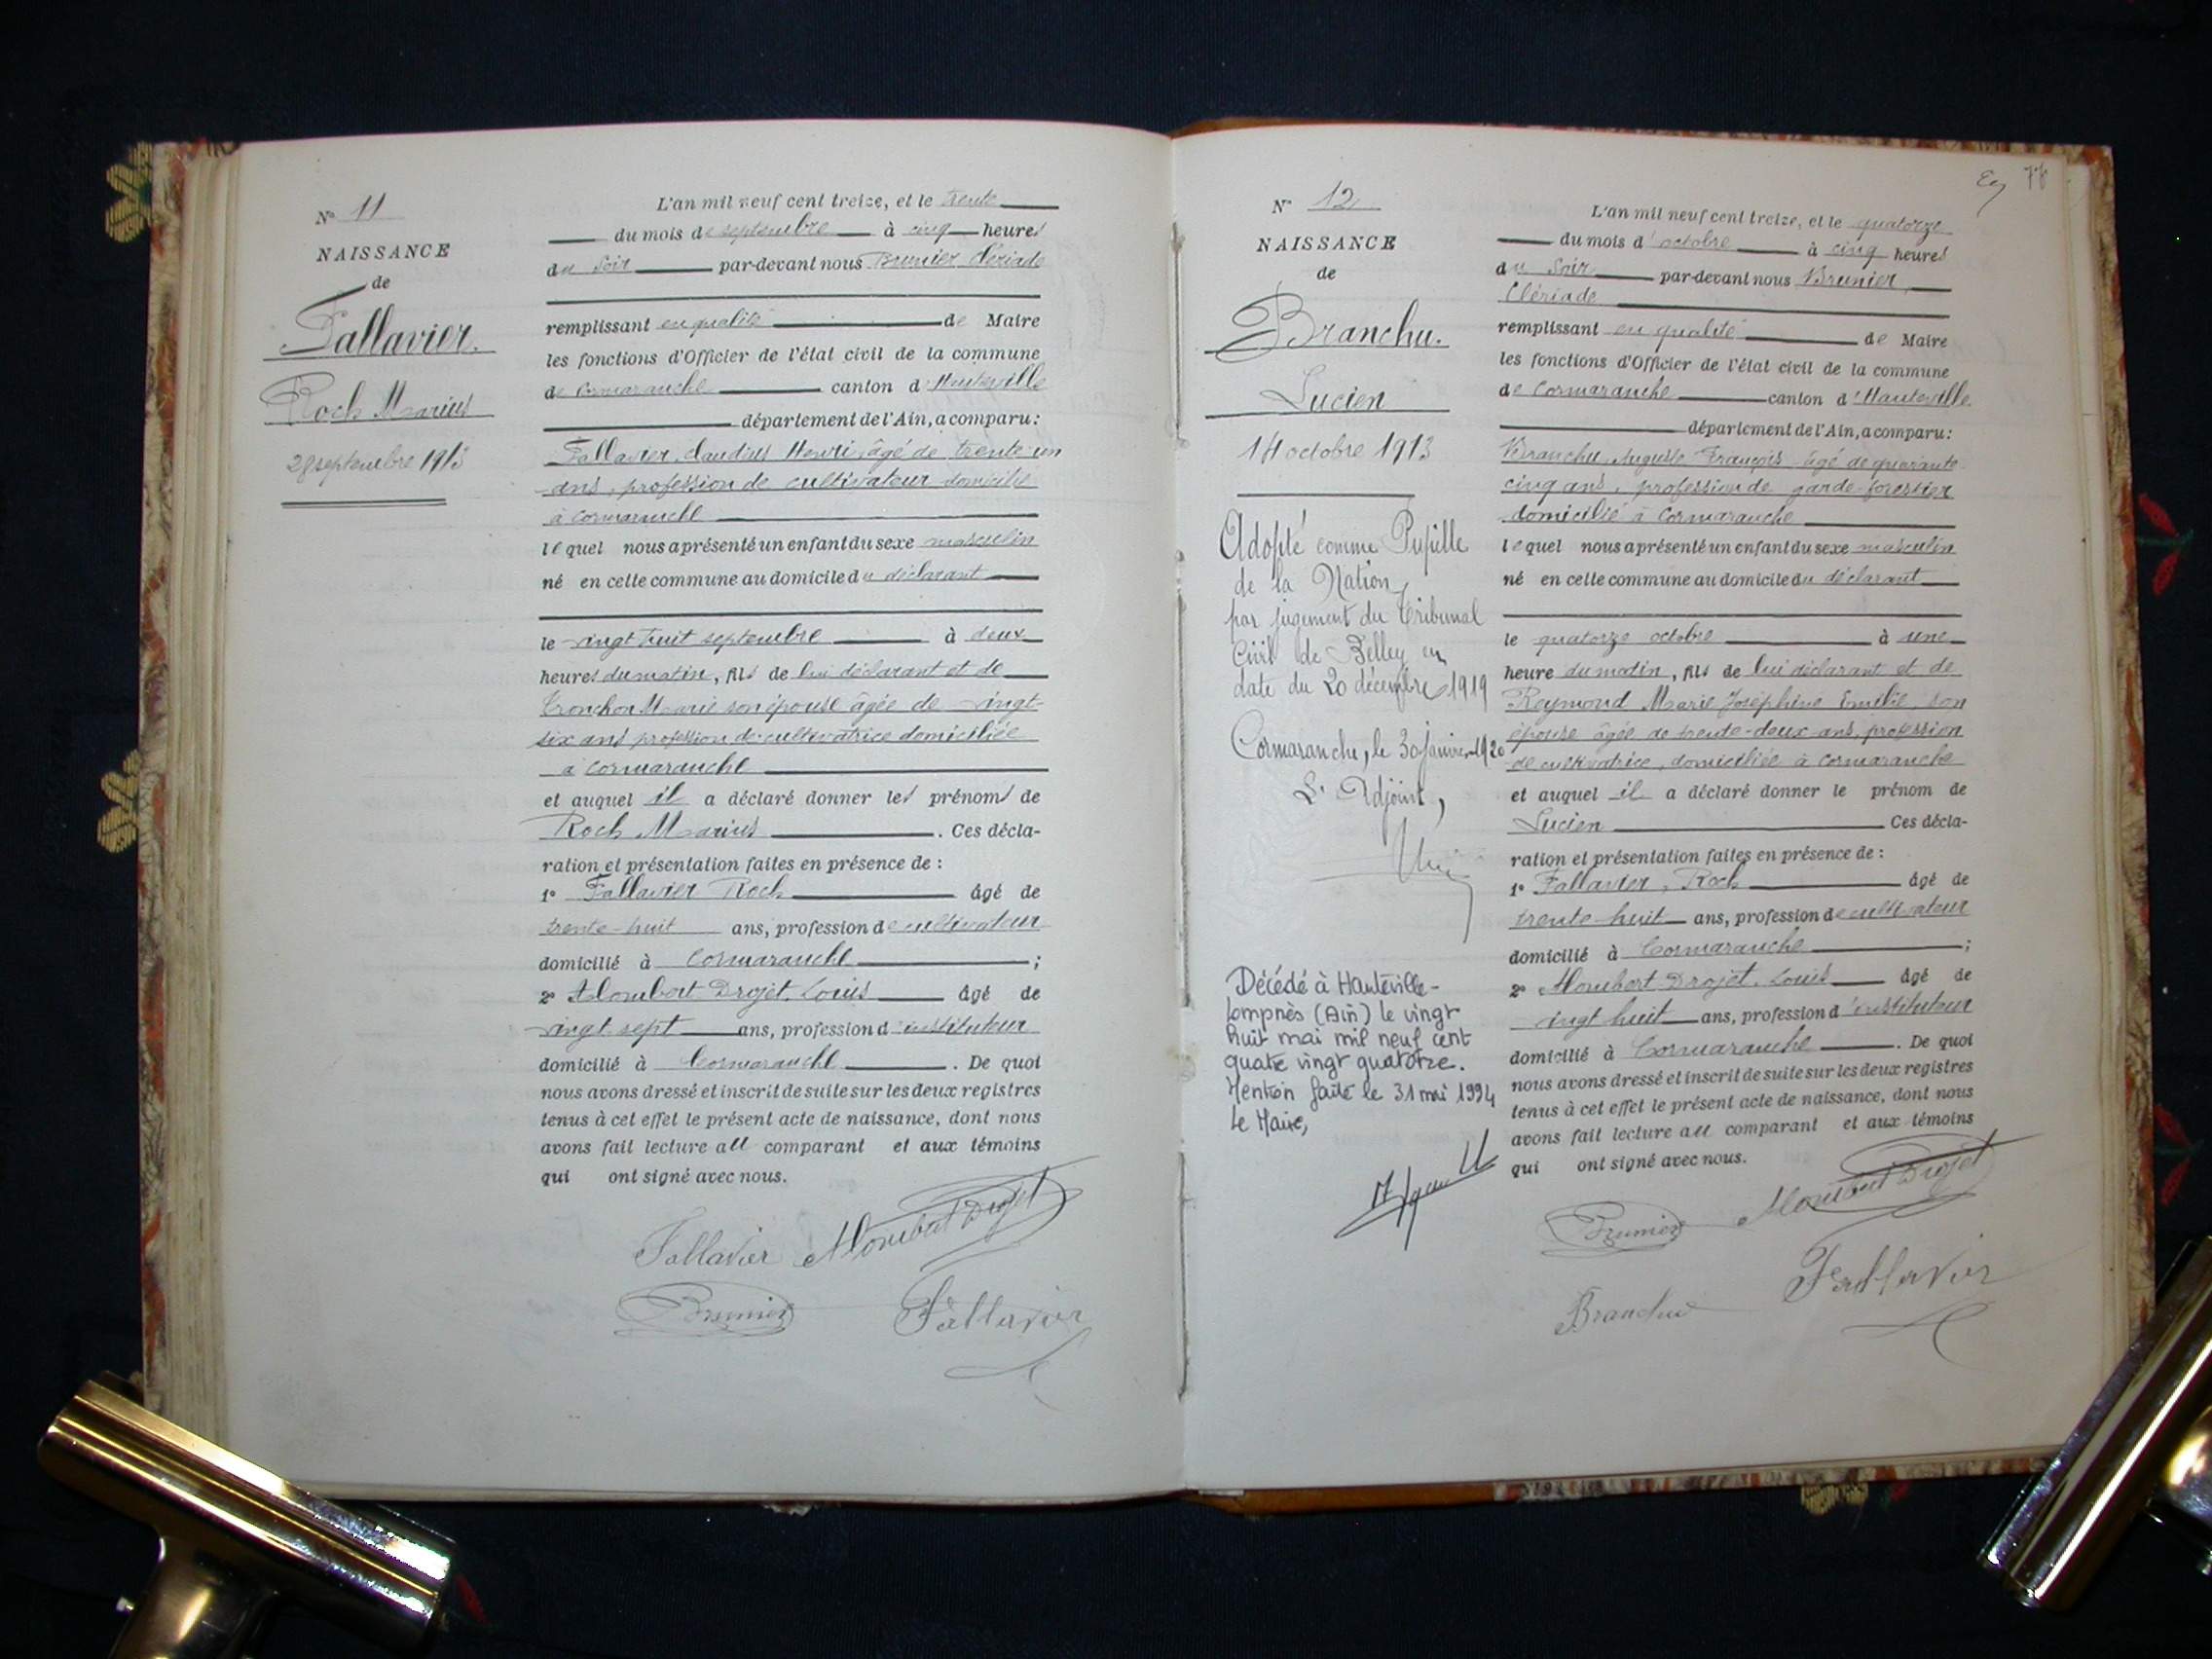 N° 11
NAISSANCE
de
Fallavier.
Roch Marius
28 septembre 1913
L'an mil neuf cent treize, et le trente
du mois de septembre à cinq heures
du soir par-devant nous Brunier Clériade
remplissant en qualité de Maire
les fonctions d'Officier de l'état civil de la commune
de Cormaranche canton d'Hauteville
département de l'Ain, a comparu:
Fallavier, Claudius Henri, âgé de trente-un
ans, profession de cultivateur domicilié
à Cormaranche
lequel nous a présenté un enfant du sexe masculin
né en cette commune au domicile du déclarant
le vingt huit septembre à deux
heures du matin, fils de lui déclarant et de
Tronchon Marie son épouse âgée de vingt-
six ans profession de cultivatrice domiciliée
à Cormaranche
et auquel il a déclaré donner les prénoms de
Roch Marius . Ces décla-
ration et présentation faites en présence de :
1° Fallavier Roch âgé de
trente-huit ans, profession de cultivateur
domicilié à Cormaranche ;
2° Mombert Drojet, Louis âgé de
vingt-sept ans, profession d'instituteur
domicilié à Cormaranche . De quoi
nous avons dressé et inscrit de suite sur les deux registres
tenus à cet effet le présent acte de naissance, dont nous
avons fait lecture au comparant et aux témoins
qui ont signé avec nous.
Fallavier Mombert Drojet
Brunier Fallavier
78
N° 12
NAISSANCE
de
Branchu.
Lucien
14 octobre 1913
Adopté comme Pupille
de la Nation,
par jugement du Tribunal
Civil de Belley en
date du 20 décembre 1919
Cormaranche, le 30 janvier 1920
L'Adjoint,
Décédé à Hauteville-
Lompnès (Ain) le vingt
huit mai mil neuf cent
quatre vingt quatorze.
Mention faite le 31 mai 1994
Le Maire,
L'an mil neuf cent treize, et le quatorze
du mois d'octobre à cinq heures
du soir par-devant nous Brunier,
Clériade
remplissant en qualité de Maire
les fonctions d'Officier de l'état civil de la commune
de Cormaranche canton d'Hauteville
département de l'Ain, a comparu:
Branchu, Auguste François âgé de quarante-
cinq ans, profession de garde-forestier
domicilié à Cormaranche
lequel nous a présenté un enfant du sexe masculin
né en cette commune au domicile du déclarant
le quatorze octobre à une
heure du matin, fils de lui déclarant et de
Reymond Marie Joséphine Emilie, son
épouse âgée de trente-deux ans, profession
de cultivatrice, domiciliée à Cormaranche
et auquel il a déclaré donner le prénom de
Lucien Ces décla-
ration et présentation faites en présence de :
1° Fallavier, Roch âgé de
trente-huit ans, profession de cultivateur
domicilié à Cormaranche ;
2° Mombert Drojet, Louis âgé de
vingt huit ans, profession d'instituteur
domicilié à Cormaranche . De quoi
nous avons dressé et inscrit de suite sur les deux registres
tenus à cet effet le présent acte de naissance, dont nous
avons fait lecture au comparant et aux témoins
qui ont signé avec nous.
Brunier Mombert Drojet
Branchu Fallavier